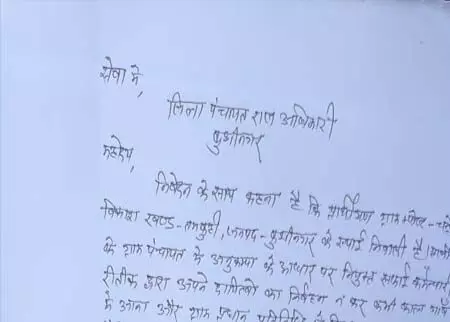 सेवा में,
जिला पंचायत राज अधिकारी
कुशीनगर
महोदय,
निवेदन के साथ कहना है कि प्रार्थीगण ग्राम पोस्ट-
विकास खण्ड-तमकुही, जनपद-कुशीनगर के स्थाई निवासी है।
के ग्राम पंचायत के अनुकम्पा के आधार पर नियुक्त सफाई कर्मचारी
द्वारा अपने दायित्वों का निर्वहन न कर कभी काम
में आना और ग्राम प्रधान प्रतिनिधि